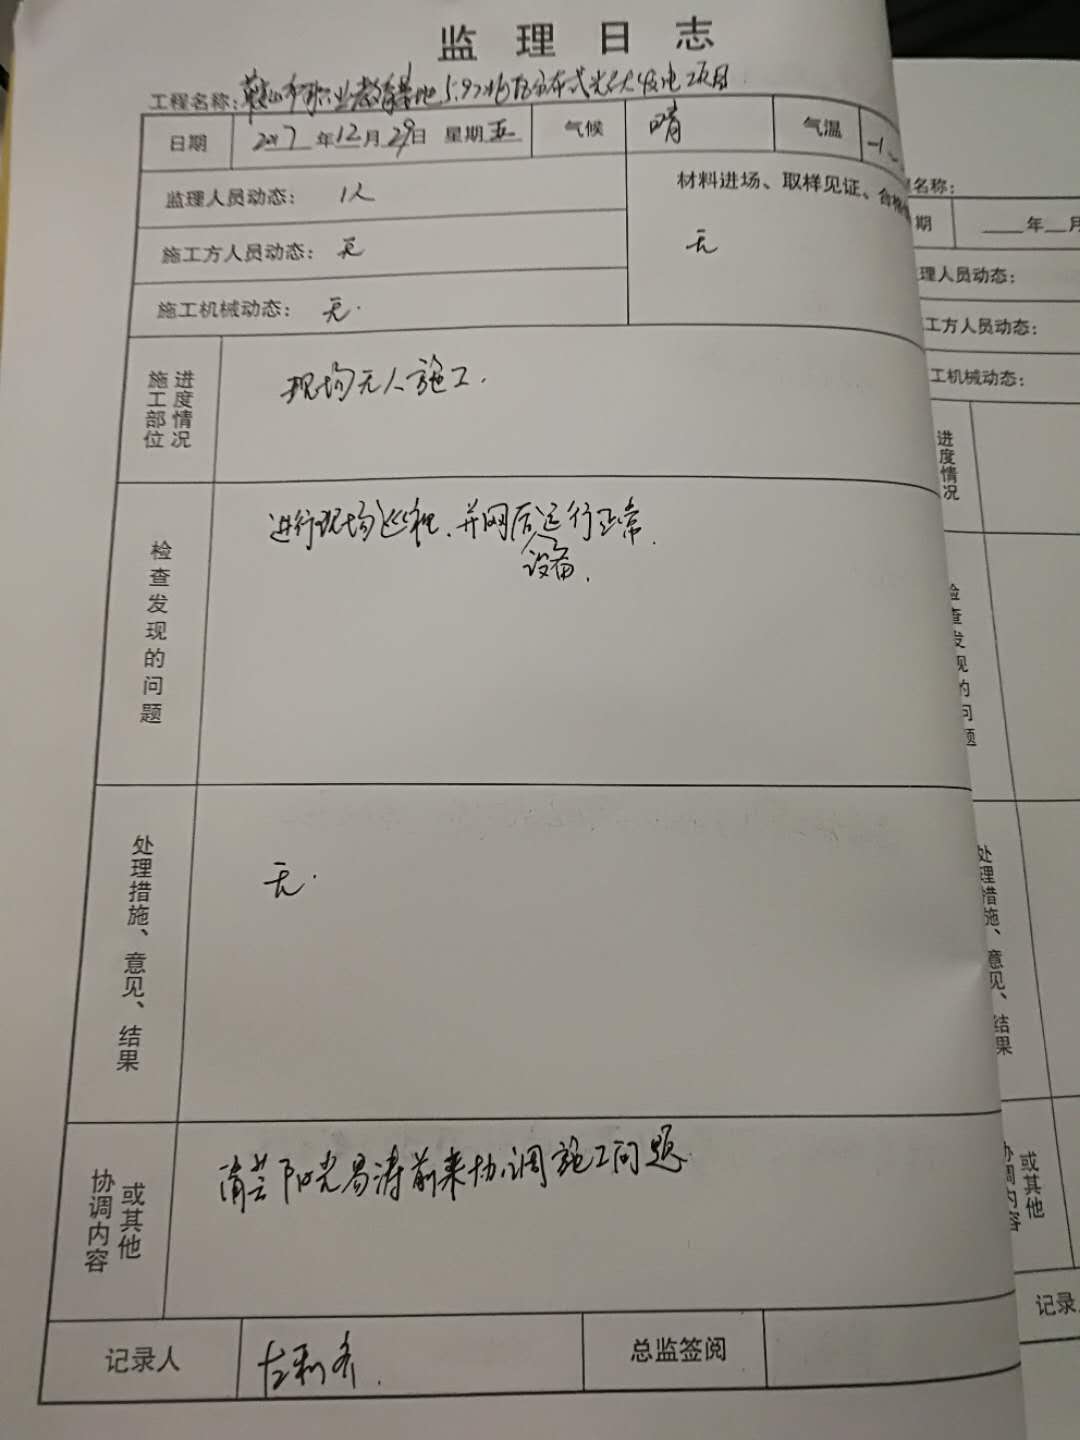 监理日志
工程名称:鞍山市职业教育基地5.97兆瓦分布式光伏发电项目
日期 2017年12月29日 星期五 气候 晴 气温 -1
监理人员动态: 1人
材料进场、取样见证、合格
施工方人员动态: 无
无
施工机械动态: 无.
施工部位 进度情况
现场无人施工.
检查发现的问题
进行现场巡视、并网后设备运行正常.
处理措施、意见、结果
无.
协调内容 或其他
清芸阳光易涛前来协调施工问题.
记录人
总监签阅
名称:
期 年 月
理人员动态:
工方人员动态:
工机械动态:
进度情况
检查发现的问题
处理措施、意见、结果
协调内容 或其他
记录